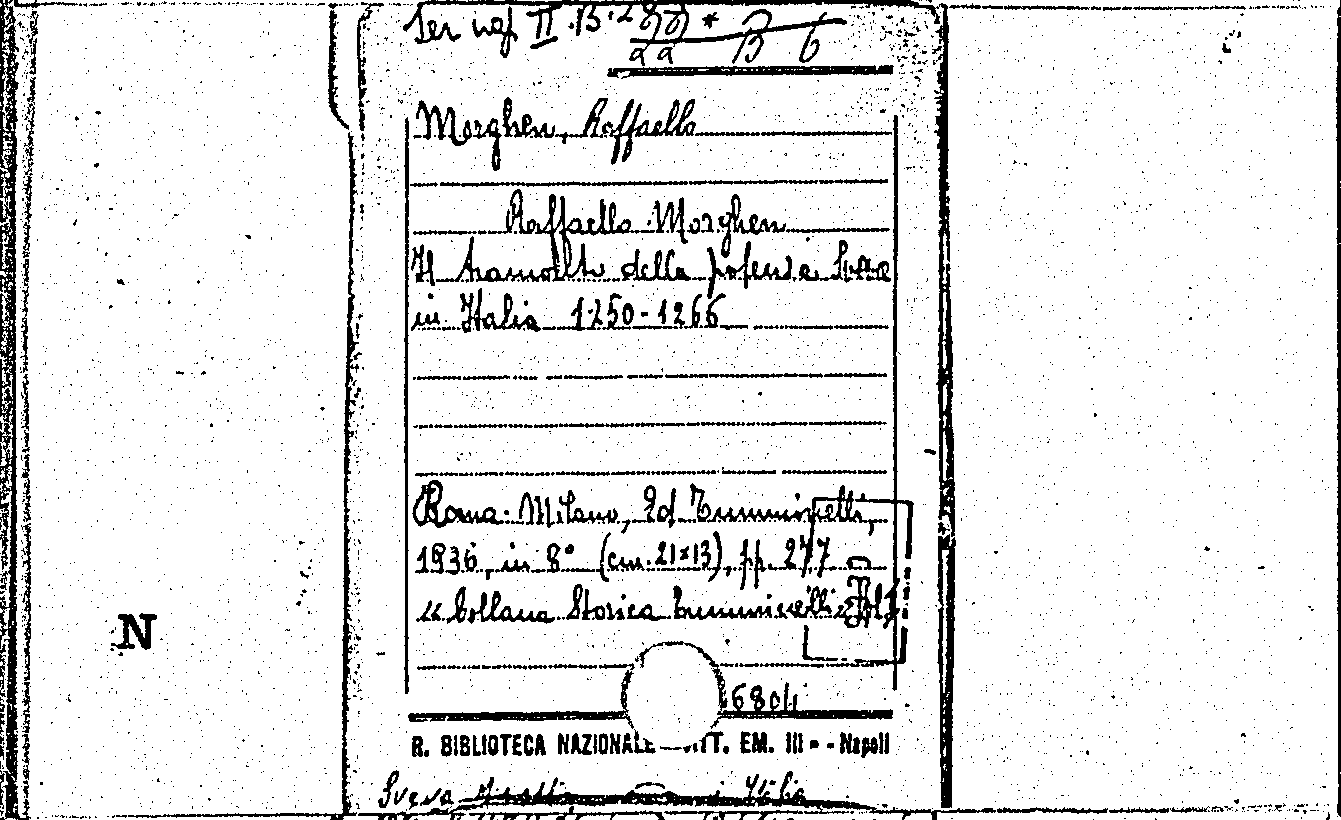 Ser. inf. II. B. 2
B 6
Morghen, Raffaello
Raffaello Morghen
Il tramonto della potenza Sveva
in Italia 1250-1266
Roma-Milano, Ed. Tumminelli,
1936, in 8° (cm. 21×13), pp. 277
"Collana Storica Tumminelli
6804
R. BIBLIOTECA NAZIONALE VITT. EM. III - - Napoli
Sveva Italia
N